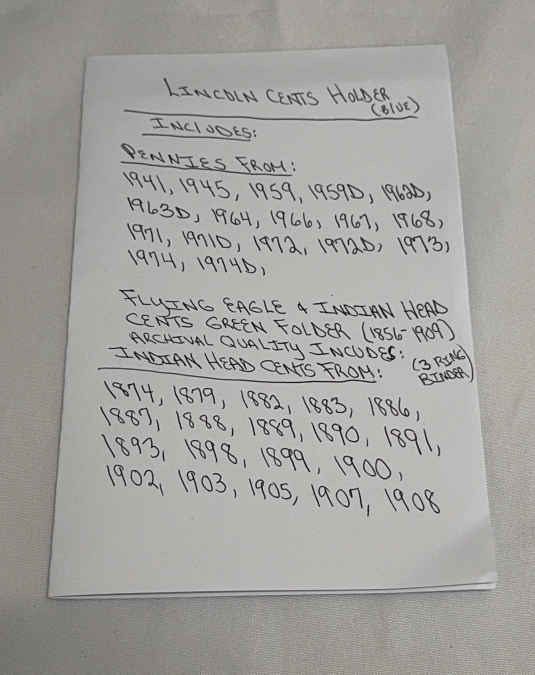 LINCOLN CENTS HOLDER
(BLUE)
INCLUDES:
PENNIES FROM:
1941, 1945, 1959, 1959D, 1962D,
1963D, 1964, 1966, 1967, 1968,
1971, 1971D, 1972, 1972D, 1973,
1974, 1974D,
FLYING EAGLE & INDIAN HEAD
CENTS GREEN FOLDER (1856-1909)
ARCHIVAL QUALITY INCUDES:
INDIAN HEAD CENTS FROM: (3 RING
BINDER)
1874, 1879, 1882, 1883, 1886,
1887, 1888, 1889, 1890, 1891,
1893, 1898, 1899, 1900,
1902, 1903, 1905, 1907, 1908